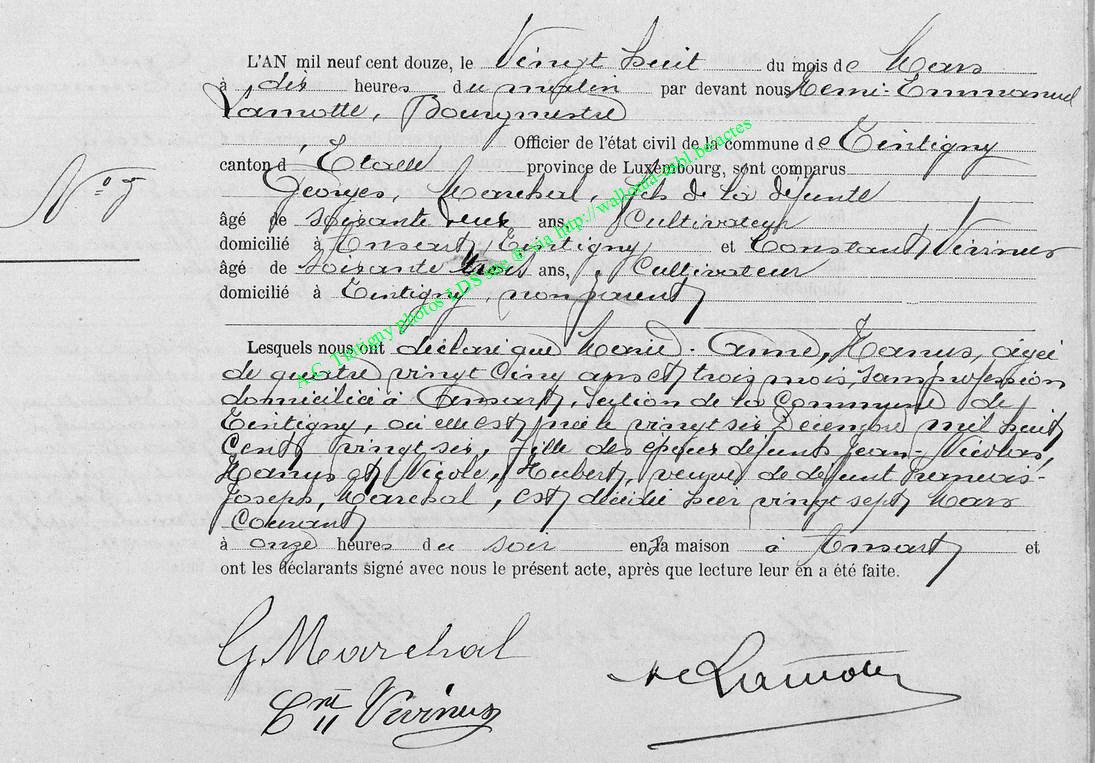 L'AN mil neuf cent douze, le Vingt huit du mois de Mars
à dix heures du matin par devant nous Remi-Emmanuel
Lamotte, Bourgmestre
Officier de l'état civil de la commune de Tintigny
canton d'Etalle province de Luxembourg, sont comparus
N° 5
Georges, Marchal, fils de la défunte
âgé de soixante deux ans, Cultivateur
domicilié à Ansart, Tintigny et Constant, Vivinus
âgé de soixante trois ans, Cultivateur
domicilié à Tintigny, non parent
Lesquels nous ont déclaré que Marie-Anne, Hanus, agée
de quatre vingt cinq ans et trois mois, sans profession
domiciliée à Ansart, section de la Commune de
Tintigny, où elle est née le vingt six Décembre mil huit
Cent vingt six, fille des époux défunts Jean-Nicolas,
Hanus et Nicole, Hubert, veuve de défunt François-
Joseph, Marchal, est décédée hier vingt sept Mars
Courant
à onze heures du soir en la maison à Ansart, et
ont les déclarants signé avec nous le présent acte, après que lecture leur en a été faite.
G Marchal
Cnt Vivinus
Lamotte
A.G. Tintigny photos LDS site ® via http://wallonia-mbl.be/actes